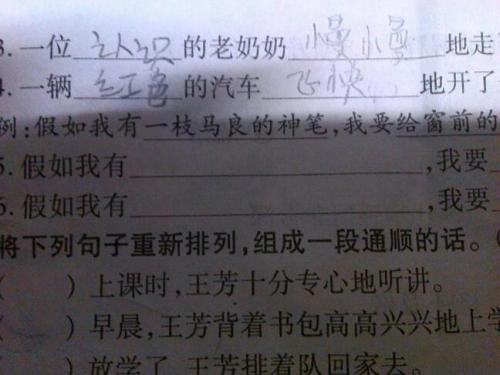 3.一位认识的老奶奶慢慢地走
4.一辆红色的汽车飞快地开了
例:假如我有一枝马良的神笔,我要给窗前的
5.假如我有____,我要
6.假如我有____,我要
将下列句子重新排列,组成一段通顺的话。(
( )上课时,王芳十分专心地听讲。
( )早晨,王芳背着书包高高兴兴地上学
( )放学了,王芳排着队回家去。